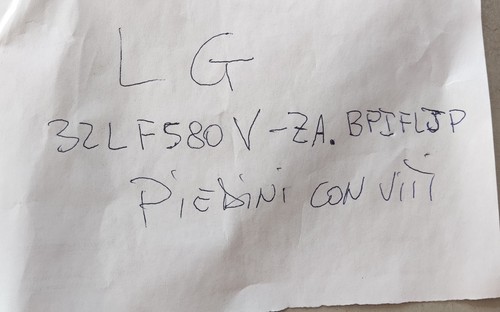 LG
32LF580V-ZA.BPIFLJP
PIEDINI CON VITI